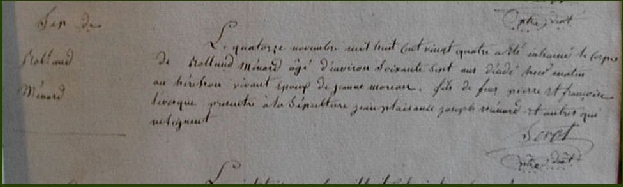 Sep. de
Rolland
Ménard
Le quatorze novembre mil huit cent vingt quatre a été inhumé le corps
de Rolland Ménard âgé d'environ soixante sept ans décédé hier matin
au vivant époux de jeanne moreau. fils de feus pierre et françoise
levêque, présents à la sépulture jean plaisance joseph ménard et autres qui
ne signent